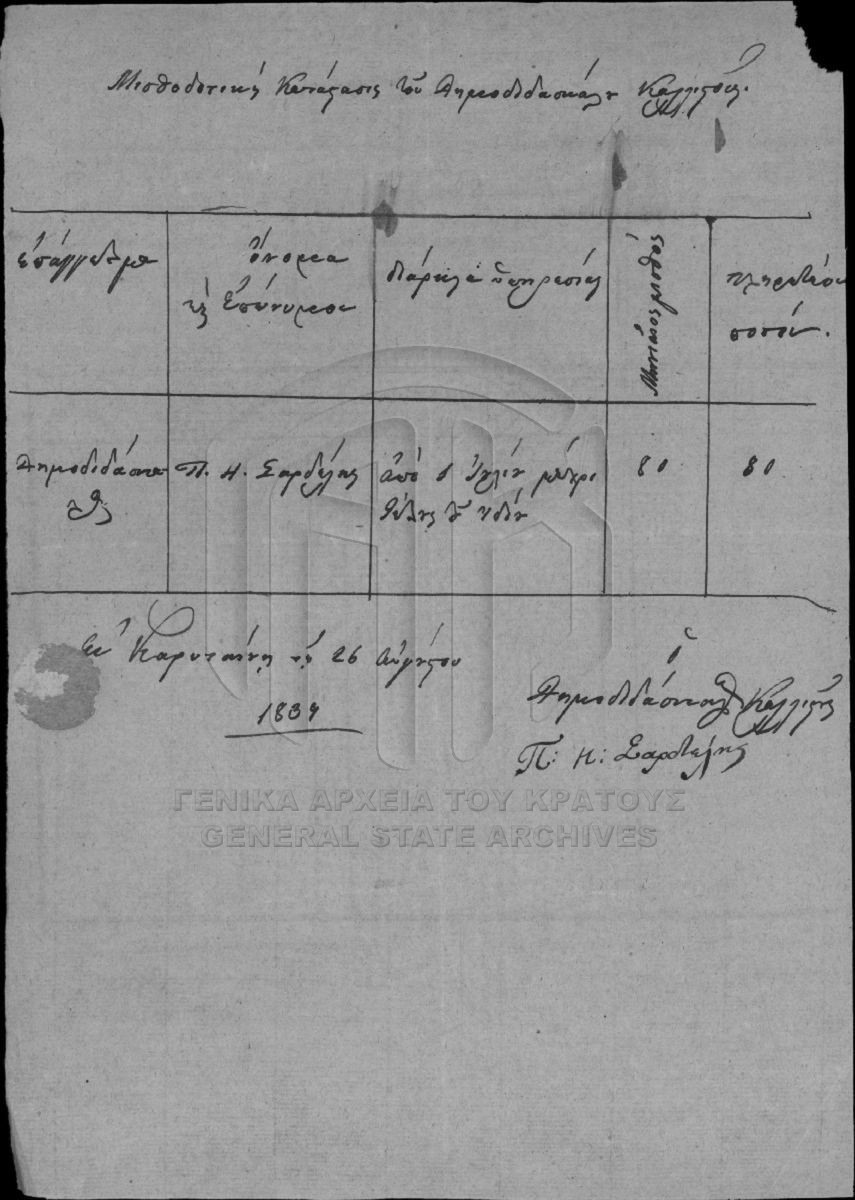 Μισθοδοτική Κατάστασις τοῦ Δημοδιδασκάλου
ἐπάγγελμα
ὄνομα
καὶ ἐπώνυμον
διάρκεια ὑπηρεσίας
Μηνιαῖος μισθός
πληρωτέον
ποσόν.
Δημοδιδάσκα
λος
Π. Η. Σαρδέλης
ἀπὸ α Ἰουλίου μέχρι
τέλους τοῦ ἰδίου
80
80
Ἐν Καρυταίνῃ τῇ 26 Αὐγούστου
1834
ὁ
Δημοδιδάσκαλος
Π: Η: Σαρδέλης
ΓΕΝΙΚΑ ΑΡΧΕΙΑ ΤΟΥ ΚΡΑΤΟΥΣ
GENERAL STATE ARCHIVES